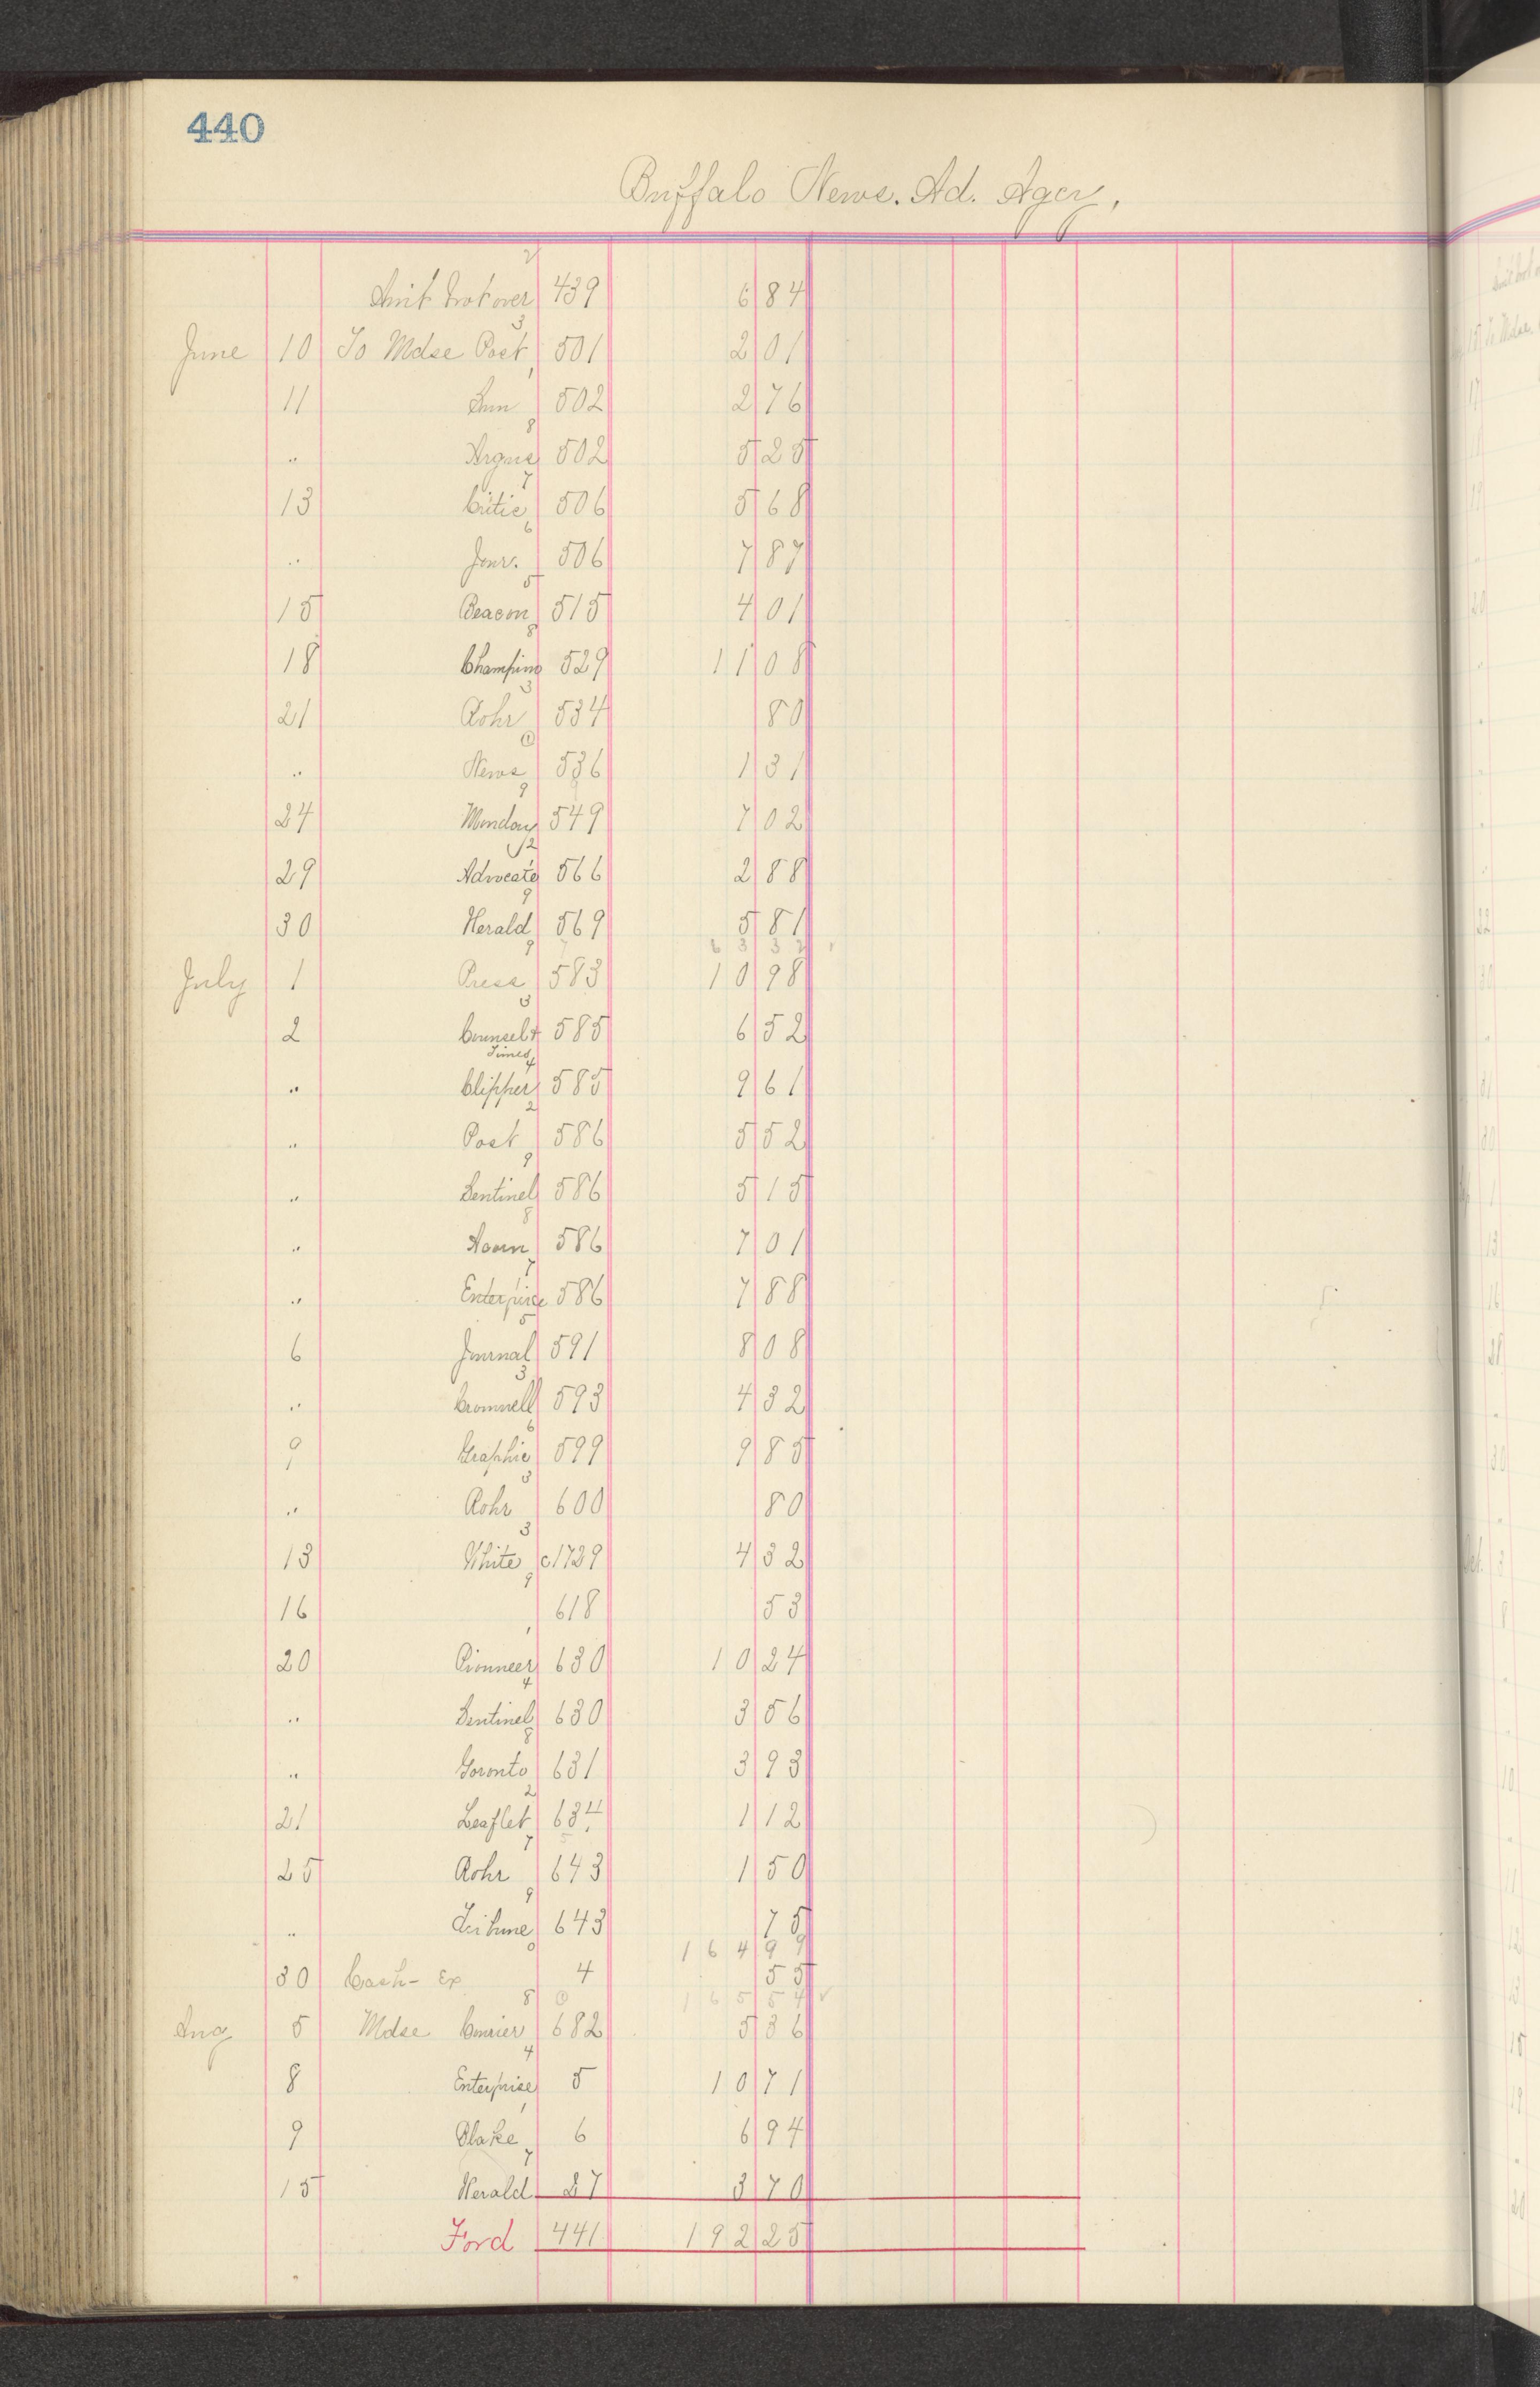 440
Buffalo News. Ad. Agcy,
Amt brot over 439 6 84
June 10 To Mdse Post 501 2 01
11 Sun 502 2 76
" Argus 502 5 25
13 Critic 506 5 68
" Jour. 506 7 87
15 Beacon 515 4 01
18 Champion 529 11 08
21 Rohr 534 80
" News 536 1 31
24 Monday 549 7 02
29 Advocate 566 2 88
30 Herald 569 5 81
63 32
July 1 Press 583 10 98
2 Counselt 585 6 52
Times
" Clipper 585 9 61
" Post 586 5 52
" Sentinel 586 5 15
" 586 7 01
" Enterprise 586 7 88
6 Journal 591 8 08
" Cromwell 593 4 32
9 Graphic 599 9 85
" Rohr 600 80
13 White c1739 4 32
16 618 53
20 Pionneer 630 10 24
" Sentinel 630 3 56
" Toronto 631 3 93
21 Leaflet 634 1 12
25 Rohr 643 1 50
" Tribune 643 75
164 99
30 Cash - Ex 4 55
165 54
Aug 5 Mdse Courier 682 5 36
8 Enterprise 5 10 71
9 Blake 6 6 94
15 Herald 27 3 70
Ford 441 192 25